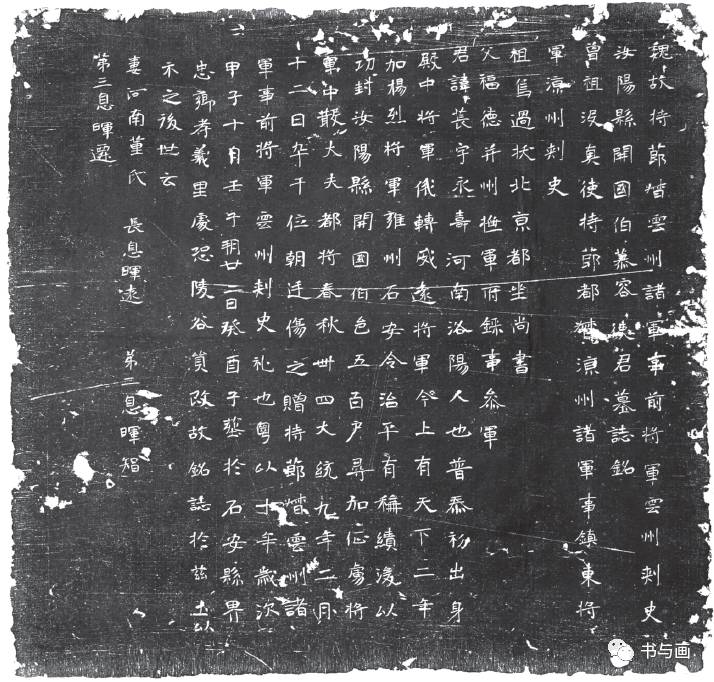 魏故持節督雲州諸軍事前將軍雲州刾史
汝陽縣開國伯慕容使君墓誌銘
曾祖沒真使持節都督涼州諸軍事鎮東將
軍涼州刾史
祖篤過扶北京都坐尚書
父福德并州撫軍府錄事叅軍
君諱裴字永壽河南洛陽人也普泰初出身
殿中將軍俄轉威遠將軍今上有天下二年
加楊烈將軍雍州石安令治平有稱績後以
功封汝陽縣開國伯邑五百户尋加征虜將
軍中散大夫都將春秋卌四大統九年二月
十二日卒于位朝廷傷之贈持節督雲州諸
軍事前將軍雲州刾史礼也粵以十年歲次
甲子十月壬子朔廿二日癸酉子塟於石安縣界
忠鄉孝義里慮恐陵谷貿改故銘誌於兹土以
示之後世云
妻河南董氏 長息暉遠 第二息暉智
第三息暉遷
书与画